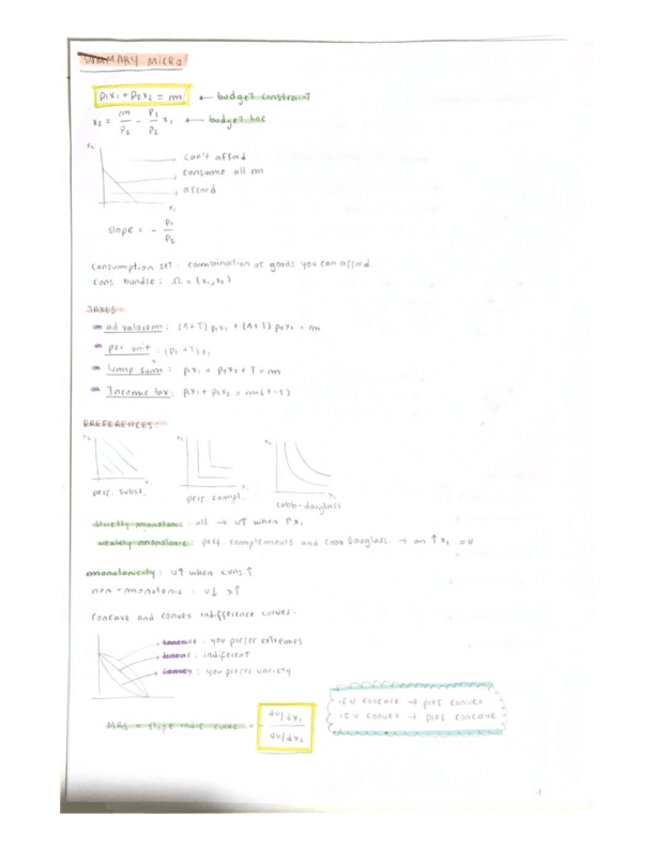 SUMMARY MICRO
p₁x₁ + p₂x₂ = m ← budget constraint
x₂ = m/p₂ - p₁/p₂ x₁ ← budget line
x₂
can't afford
consume all m
afford
x₁
slope = - p₁/p₂
consumption set: combination of goods you can afford
cons bundle: Ω = (x₁, x₂)
TAXES:
ad valorem: (1+T) p₁x₁ + (1+T) p₂x₂ = m
per unit: (p₁ + T) x₁
lump sum: p₁x₁ + p₂x₂ + T = m
Income tax: p₁x₁ + p₂x₂ = m(1-t)
PREFERENCES:
x₂ x₂ x₂
x₁ x₁ x₁
perf. subst. perf. compl. cobb-douglass
strictly monotonic: all → u↑ when ↑x₁
weakly monotonic: perf. complements and Cobb Douglass. → an ↑x₁ = u
monotonicity: u↑ when cons.↑
non-monotonic: u↓ x↑
concave and convex indifference curves.
concave: you prefer extremes
linear: indiferent
convex: you prefer variety
MRS = slope indif curve = - du/dx₁ / du/dx₂
if u concave → pref convex
if u convex → pref concave
1